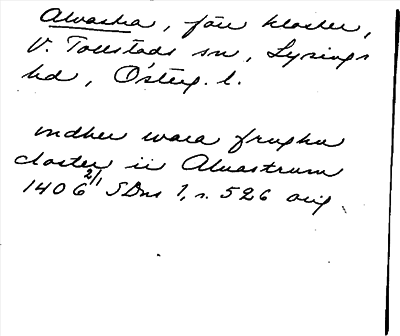 Alvastra, förr kloster,
V. Tollstads sn, Lysings
hd, Österg. l.
widher wara frughu
closter ii Aluastrum
1406 2/1 SDns 1, s. 526 orig.